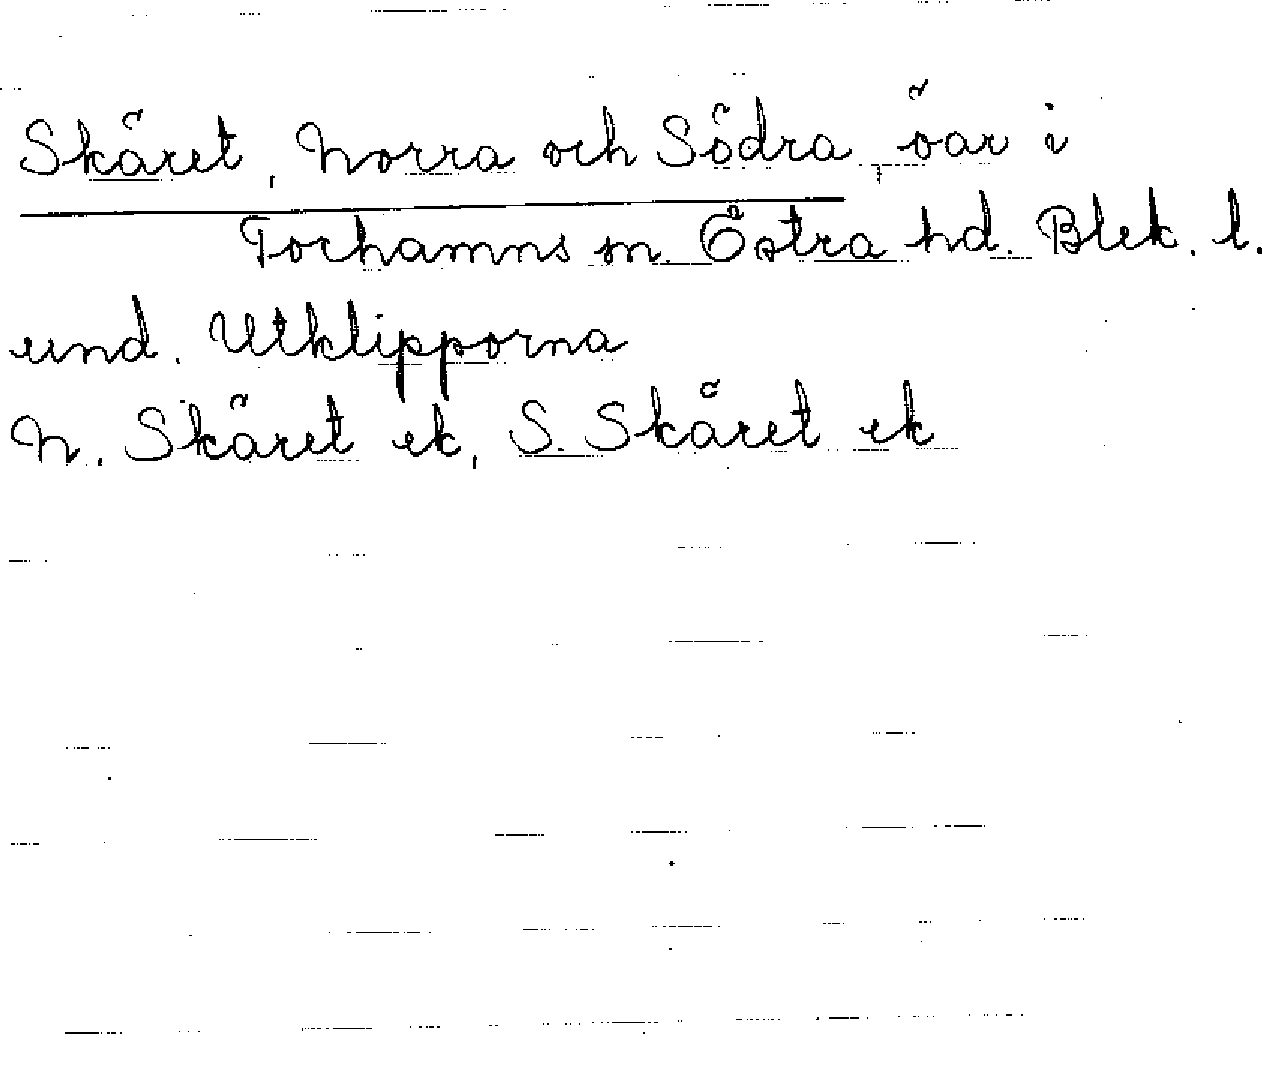 Skäret, Norra och Södra, öar i
Torhamns sn. Östra hd. Blek. l.
und. Utklipporna
N. Skäret ek, S. Skäret ek